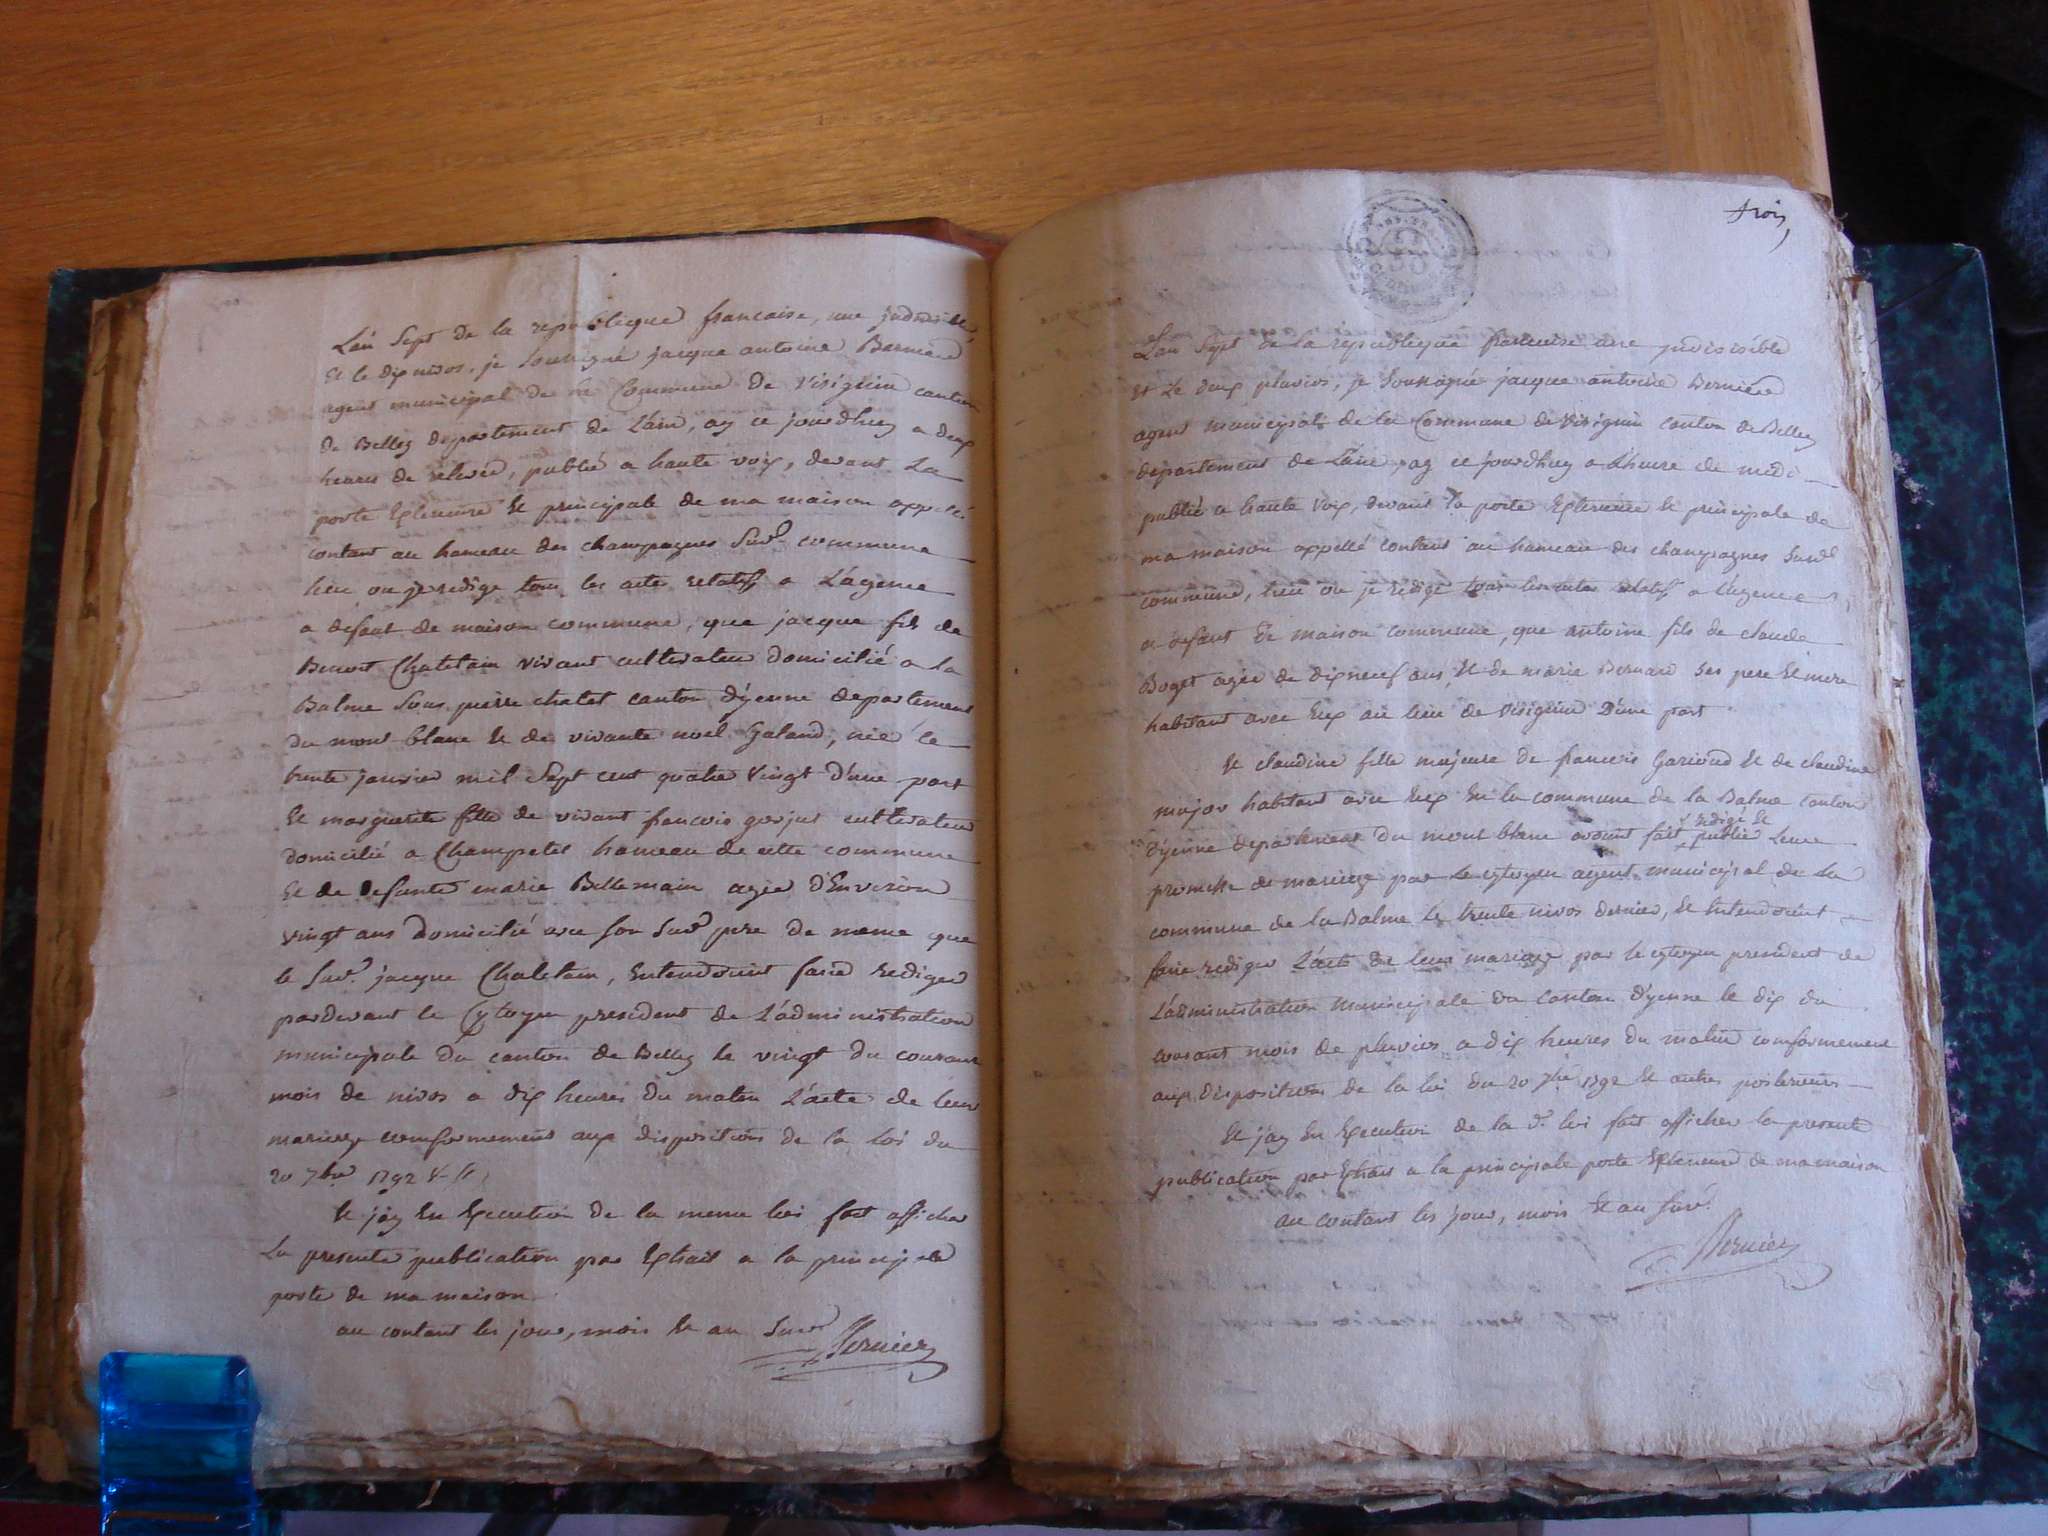 L'an Sept de la republique francaise, une jndivisible,
Et le dix nivos, je soussigné jacque antoine Berniere
agent municipal de la Commune de Virignin canton
de Belley departement de L'ain, ay ce jourdhuy a deux
heures de relevée, publié a haute voix, devant La
porte Exterieure Et principale de ma maison appellé
contant au hameau des champagnes Susd commune
lieu ou je redige tous les actes relatifs a L'agence
a defaut de maison commune, que jacque fils de
Benoit Chatelain vivant cultivateur domicilié a la
Balme Sous pierre chatel canton d'yenne departement
du mont blanc Et de vivante noél Galand, née le
trente janvier mil Sept cent quatre Vingt d'une part
Et marguerite fille de vivant francois gorjus cultivateur
domicilié a Champetel hameau de cette commune
Et de defunte marie Bellemain agée d'Environ
vingt ans domicilié avec son susd pere de meme que
le Susd. jacque Chatelain, Entendoient faire rediger
pardevant le Cytoyen president de L'administration
municipale du canton de Belley le vingt du courant
mois de nivos a dix heures du matin L'acte de leur
mariage conformement aux dispositions de la Loi du
20 7bre 1792 V. St.
Et jay En Execution de la meme loi fait afficher
La presente publication par Extrait a la principale
porte de ma maison
au contant les jour, mois Et an Susd
Bernier
trois,
L'an Sept de la republique francaise une jndivisible
Et Le deux pluvios, je Soussigné jacque antoine Berniere
agent municipal de la Commune de Virignin canton de Belley
departement de L'ain, ay ce jourdhuy a L'heure de midi
publié a haute voix, devant la porte Exterieure Et principale de
ma maison appellé contant au hameau des champagnes Susd
commune, lieu ou je redige tous les actes relatifs a l'agence
a defaut de maison commune, que antoine fils de claude
Boget agée de dix neuf ans, Et de marie Bernard ses pere Et mere
habitant avec Eux au lieu de Virignin D'une part
Et claudine fille majeure de francois Garioud Et de claudine
major habitant avec Eux En la commune de la Balme canton
d'yenne departement du mont blanc avoient fait redigé Et publié leur
promesse de mariage par le cytoyen agent municipal de La
commune de la Balme le trente nivos dernier, Et Entendoient
faire rediger L'acte de leur mariage par le cytoyen president de
L'administration municipale du canton d'yenne le dix du
courant mois de pluvios a dix heures du matin conformement
aux dispositions de la loi du 20 7bre 1792 Et autres posterieurs
Et jay En Execution de la d. loi fait afficher la presente
publication par Extrait a la principale porte Exterieure de ma maison
au contant les jour, mois Et an susd.
Bernier